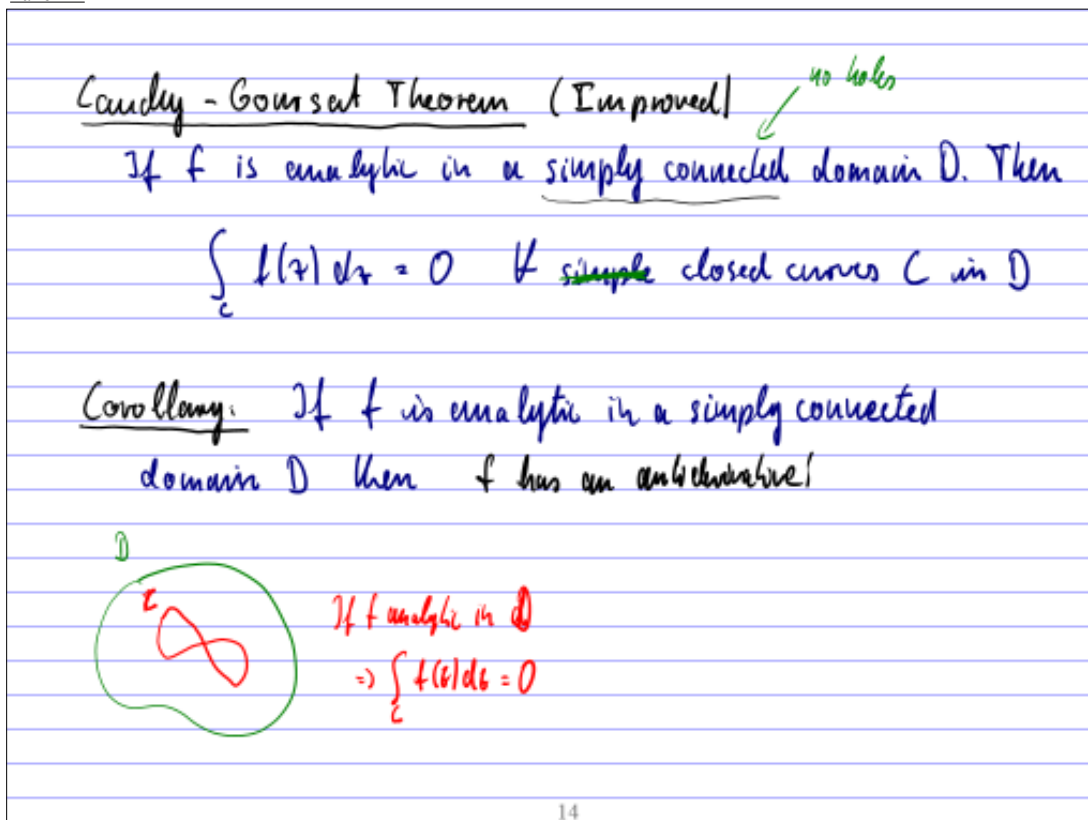 no holes
Cauchy - Goursat Theorem (Improved)
If f is analytic in a simply connected domain D. Then
∫_C f(z) dz = 0 ∀ simple closed curves C in D
Corollary. If f is analytic in a simply connected
domain D then f has an antiderivative!
D
C
If f analytic in D
=> ∫_C f(z) dz = 0
14